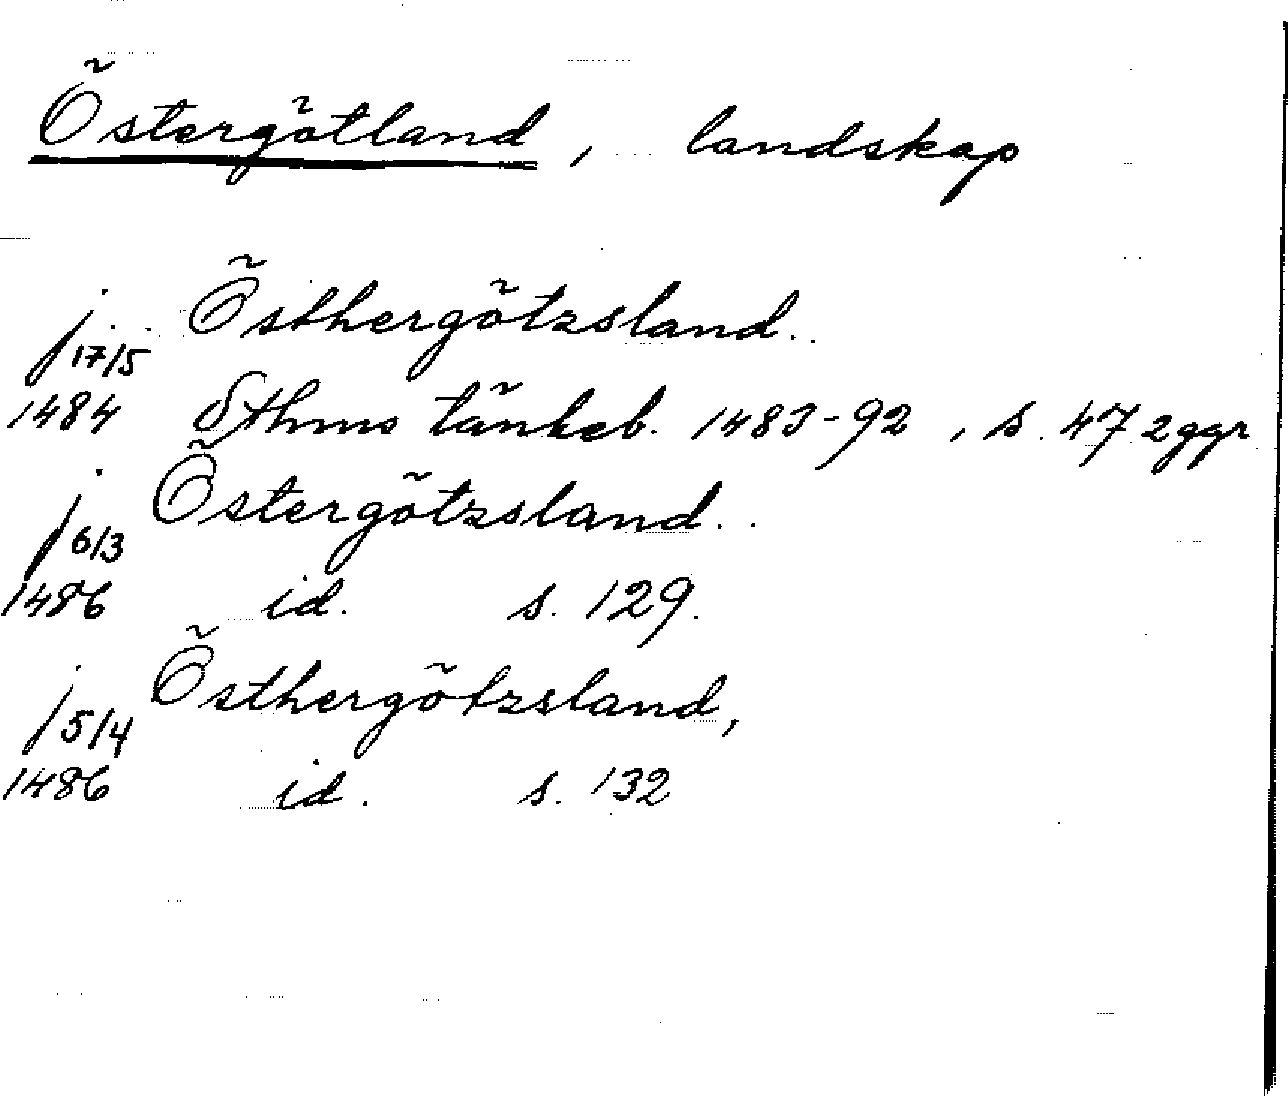 Östergötland, landskap
j Östhergötzsland.
17/5
1484 Sthms tänkeb. 1483-92, s. 47 2 ggr
j Östergötzsland.
6/3
1486 id. s. 129.
j Östhergötzsland,
5/4
1486 id. s. 132